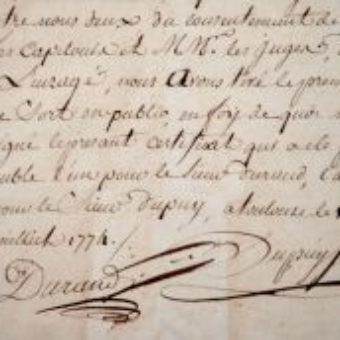 tre nous deux du consentement de
es capitouls et MMrs. les juges,
nous Avons tiré le prem
e Sort en public, en foy de quoi
igné le present certificat qui a ete
uble l'un pour le sieur durand, l'a
pour le Sieur Dupuy, a toulouse le
juillet 1774.
Durand Dupuy